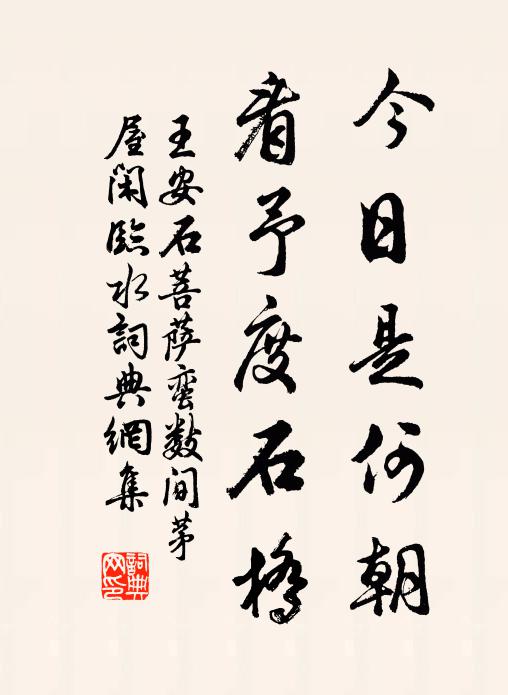 今日是何朝
看予度石橋
王安石菩薩蠻數間茅
屋閑臨水詞典網集
詞典
网印